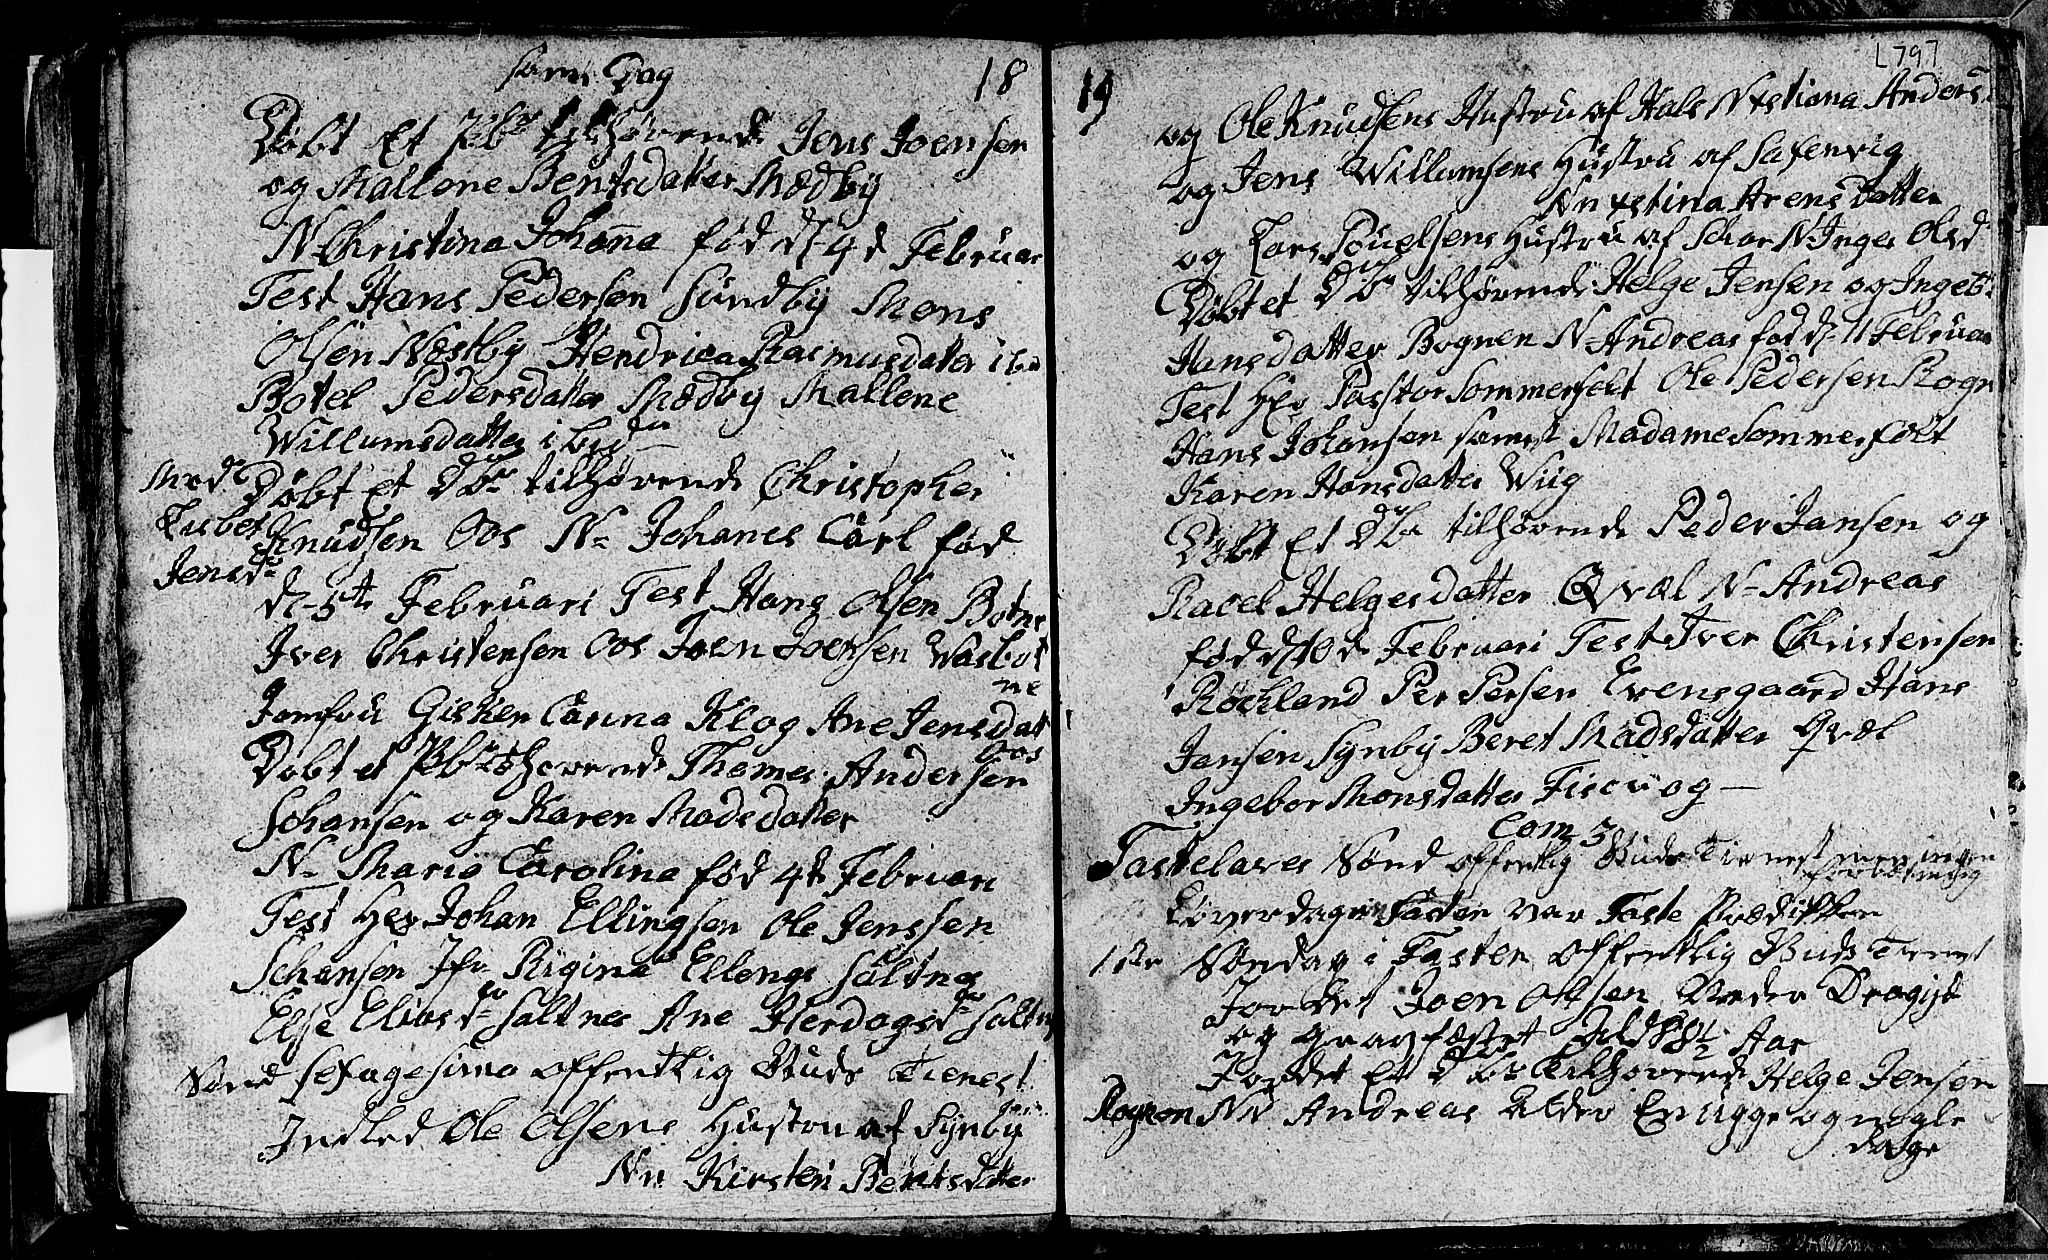 18
samme Dag
Døbt Et tilhørende Jens Joensen
og Mallene Bentsdatter Mædby
N Christina Johana fød d 4d Februar
Test Hans Pedersen Sundby Mons
Olsen Næstby Hendrica Rasmusdatter ibid
Botel Pedersdatter Mædby Mallene
Willumsdatter ibid
Døbt Et Db tilhørende Christopher
med Lisbet Jensd
Knudsen Oos N Johanes Carl fød
d 5te Februari Test Hans Olsen Botne
Iver Christensen Oos Joen Joensen Wasbot
ne
Jomfru Gisken Canna Klog Ane Jensdat
Oos
Døbt et tilhørende Thomes Andersen
Johansen og Karen Madsdatter
N Maria Carolina fød 4de Februari
Test Her Johan Ellingsen Ole Jenssen
Johansen Jfr Rigina Ellengs Saltnes
Else Eliasd Saltnes Ane Herdagsd Saltn
Sønd Sexagesima offentlig Guds Tienest
Indled Ole Olsens Hustru af Synby
Nn Kirsten Bentsdatter
19
1797
og Ole Knudsens Hustru af Hals N Xstiana Anders
og Jens Willumsens Hustru af Saxenvig
Nn Xstina Arensdatter
og Lars Pouelsens Hustru af N Inger Olsd
Døbt et Db tilhørende Helge Jensen og Ingeb
Hansdatter Rognen N Andreas fød d 11 Februar
Test Her Pastor Sommerfelt Ole Pedersen Rogn
Hans Johansen samt Madame Sommerfelt
Karen Hansdatter Wiig
Døbt Et Db tilhørende Peder Jansen og
Racel Helgesdatter Qvæl N Andreas
fød d 10de Februari Test Iver Christensen
Røchland Per Persen Evensgaard Hans
Jensen Synby Beret Madsdatter Qvæl
Ingebor Monsdatter Fiscvog
Com 3
Fastelaves Sønd offentlig Guds Tienest men ingen
Løverdagen i Fasten var Faste Prædikken
1ste Søndag i Fasten offentlig Guds Tienest
Jordet Joen Olsen Neder
og graufæstet Aar
Jordet Et Db tilhørende Helge Jensen
Rognen Nn Andreas Alder En ugge og nogle
Dage